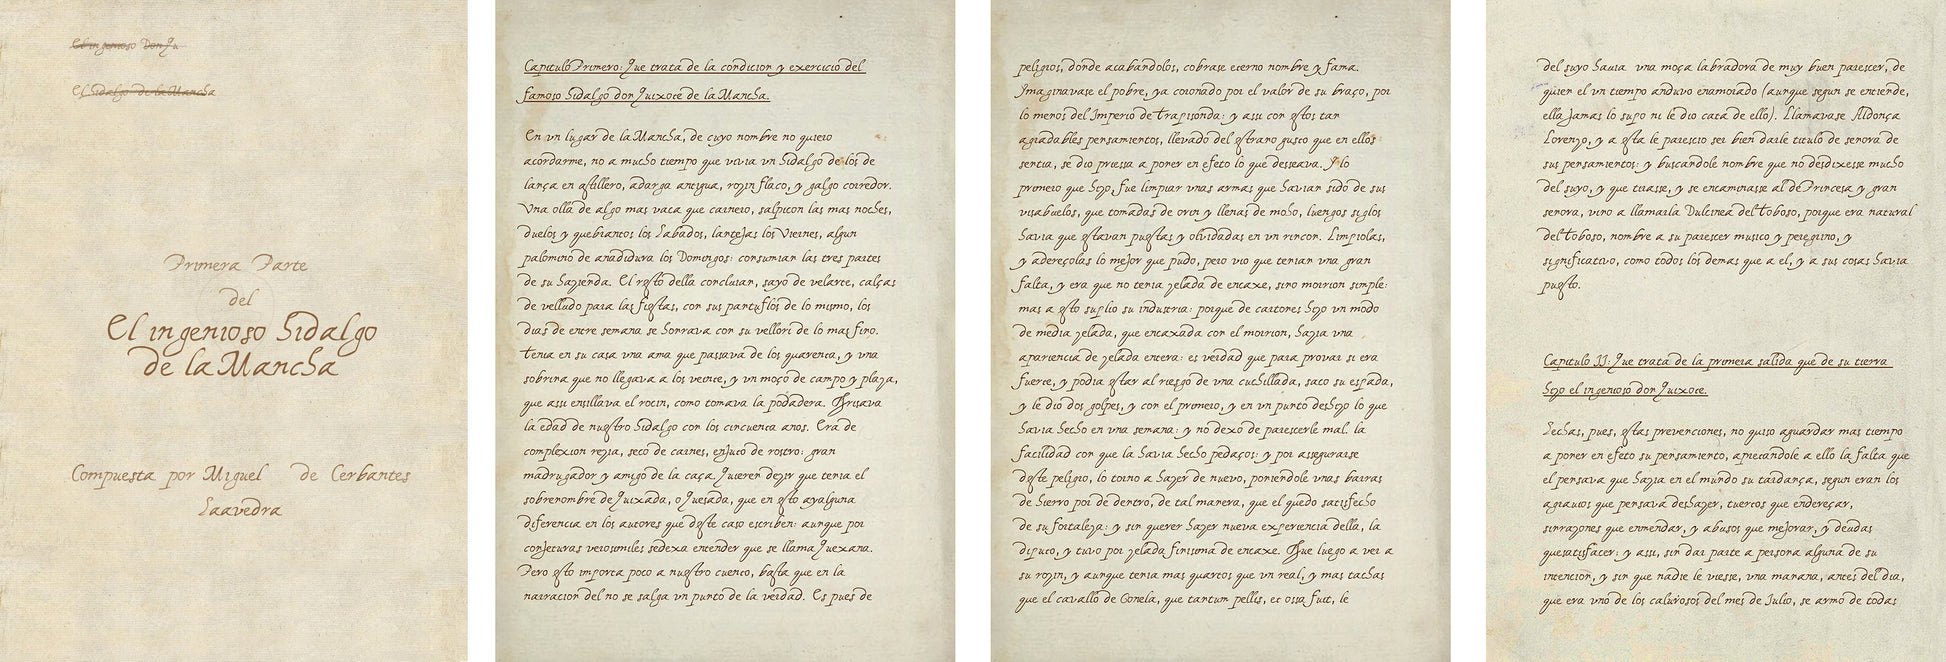 El ingenioso Don Qu
El hidalgo de la Mancha
Primera Parte
del
El ingenioso hidalgo
de la Mancha
Compuesta por Miguel de Cerbantes
Saavedra
Capitulo Primero: Que trata de la condicion y exercicio del
famoso hidalgo don Quixote de la Mancha.
En vn lugar de la Mancha, de cuyo nombre no quiero
acordarme, no a mucho tiempo que vivia vn hidalgo de los de
lança en astillero, adarga antigua, rozin flaco, y galgo corredor.
Vna olla de algo mas vaca que carnero, salpicon las mas noches,
duelos y quebrantos los Sabados, lantejas los Viernes, algun
palomino de anadidura los Domingos: consumian las tres partes
de su hazienda. El resto della concluian, sayo de velarte, calças
de velludo para las fiestas, con sus pantuflos de lo mismo, los
dias de entre semana se honrava con su vellori de lo mas fino.
Tenia en su casa vna ama que passava de los quarenta, y vna
sobrina que no llegava a los veinte, y vn moço de campo y plaza,
que assi ensillava el rocin, como tomava la podadera. Frisava
la edad de nuestro hidalgo con los cincuenta anos. Era de
complexion rezia, seco de carnes, enjuto de rostro: gran
madrugador y amigo de la caça. Quieren dezir que tenia el
sobrenombre de Quixada, o Quesada, que en esto ayalguna
diferencia en los autores que deste caso escriben: aunque por
conjeturas verosimiles sedexa entender que se llama Quexana.
Pero esto importa poco a nuestro cuento, basta que en la
narracion del no se salga vn punto de la verdad. Es pues de
peligros, donde acabandolos, cobrase eterno nombre y fama.
Imaginavase el pobre, ya coronado por el valor de su braço, por
lo menos del Imperio de Trapisonda: y assi con estos tan
agradables pensamientos, llevado del estrano gusto que en ellos
sentia, se dio priessa a poner en efeto lo que desseava. Y lo
primero que hizo, fue limpiar vnas armas que havian sido de sus
visabuelos, que tomadas de orin y llenas de moho, luengos siglos
havia que estavan puestas y olvidadas en vn rincon. Limpiolas,
y adereçolas lo mejor que pudo, pero vio que tenian vna gran
falta, y era que no tenia zelada de encaxe, sino morrion simple:
mas a esto suplio su industria: porque de cartones hizo vn modo
de media zelada, que encaxada con el morrion, hazia vna
apariencia de zelada entera: es verdad que para provar si era
fuerte, y podia estar al riesgo de vna cuchillada, saco su espada,
y le dio dos golpes, y con el primero, y en vn punto deshizo lo que
havia hecho en vna semana: y no dexo de parescerle mal. la
facilidad con que la havia hecho pedaços: y por assegurarse
deste peligro, lo torno a hazer de nuevo, poniendole vnas barras
de hierro por de dentro, de tal manera, que el quedo satisfecho
de su fortaleza: y sin querer hazer nueva experiencia della, la
diputo, y tuvo por zelada finisima de encaxe. Fue luego a ver a
su rozin, y aunque tenia mas quartos que vn real, y mas tachas
que el cavallo de Gonela, que tantum pellis, et ossa fuit, le
del suyo havia vna moça labradora de muy buen parescer, de
quien el vn tiempo anduvo enamorado (aunque segun se entiende,
ella jamas lo supo ni le dio cata de ello). Llamavase Aldonça
Lorenzo, y a esta le parescio ser bien darle titulo de senora de
sus pensamientos: y buscandole nombre que no desdixesse mucho
del suyo, y que tirasse, y se encaminasse al de Princesa y gran
senora, vino a llamarla Dulcinea del Toboso, porque era natural
del Toboso, nombre a su parescer musico y peregrino, y
significativo, como todos los demas que a el, y a sus cosas havia
puesto.
Capitulo II: Que trata de la primera salida que de su tierra
hizo el ingenioso don Quixote.
Hechas, pues, estas prevenciones, no quiso aguardar mas tiempo
a poner en efeto su pensamiento, apretandole a ello la falta que
el pensava que hazia en el mundo su tardança, segun eran los
agravios que pensava deshazer, tuertos que endereçar,
sinrazones que enmendar, y abusos que mejorar, y deudas
quesatisfacer: y assi, sin dar parte a persona alguna de su
intencion, y sin que nadie le viesse, vna manana, antes del dia,
que era vno de los calurosos del mes de Julio, se armo de todas